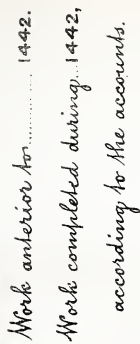 Work anterior to............ 1442.
Work completed during...1442,
according to the accounts.